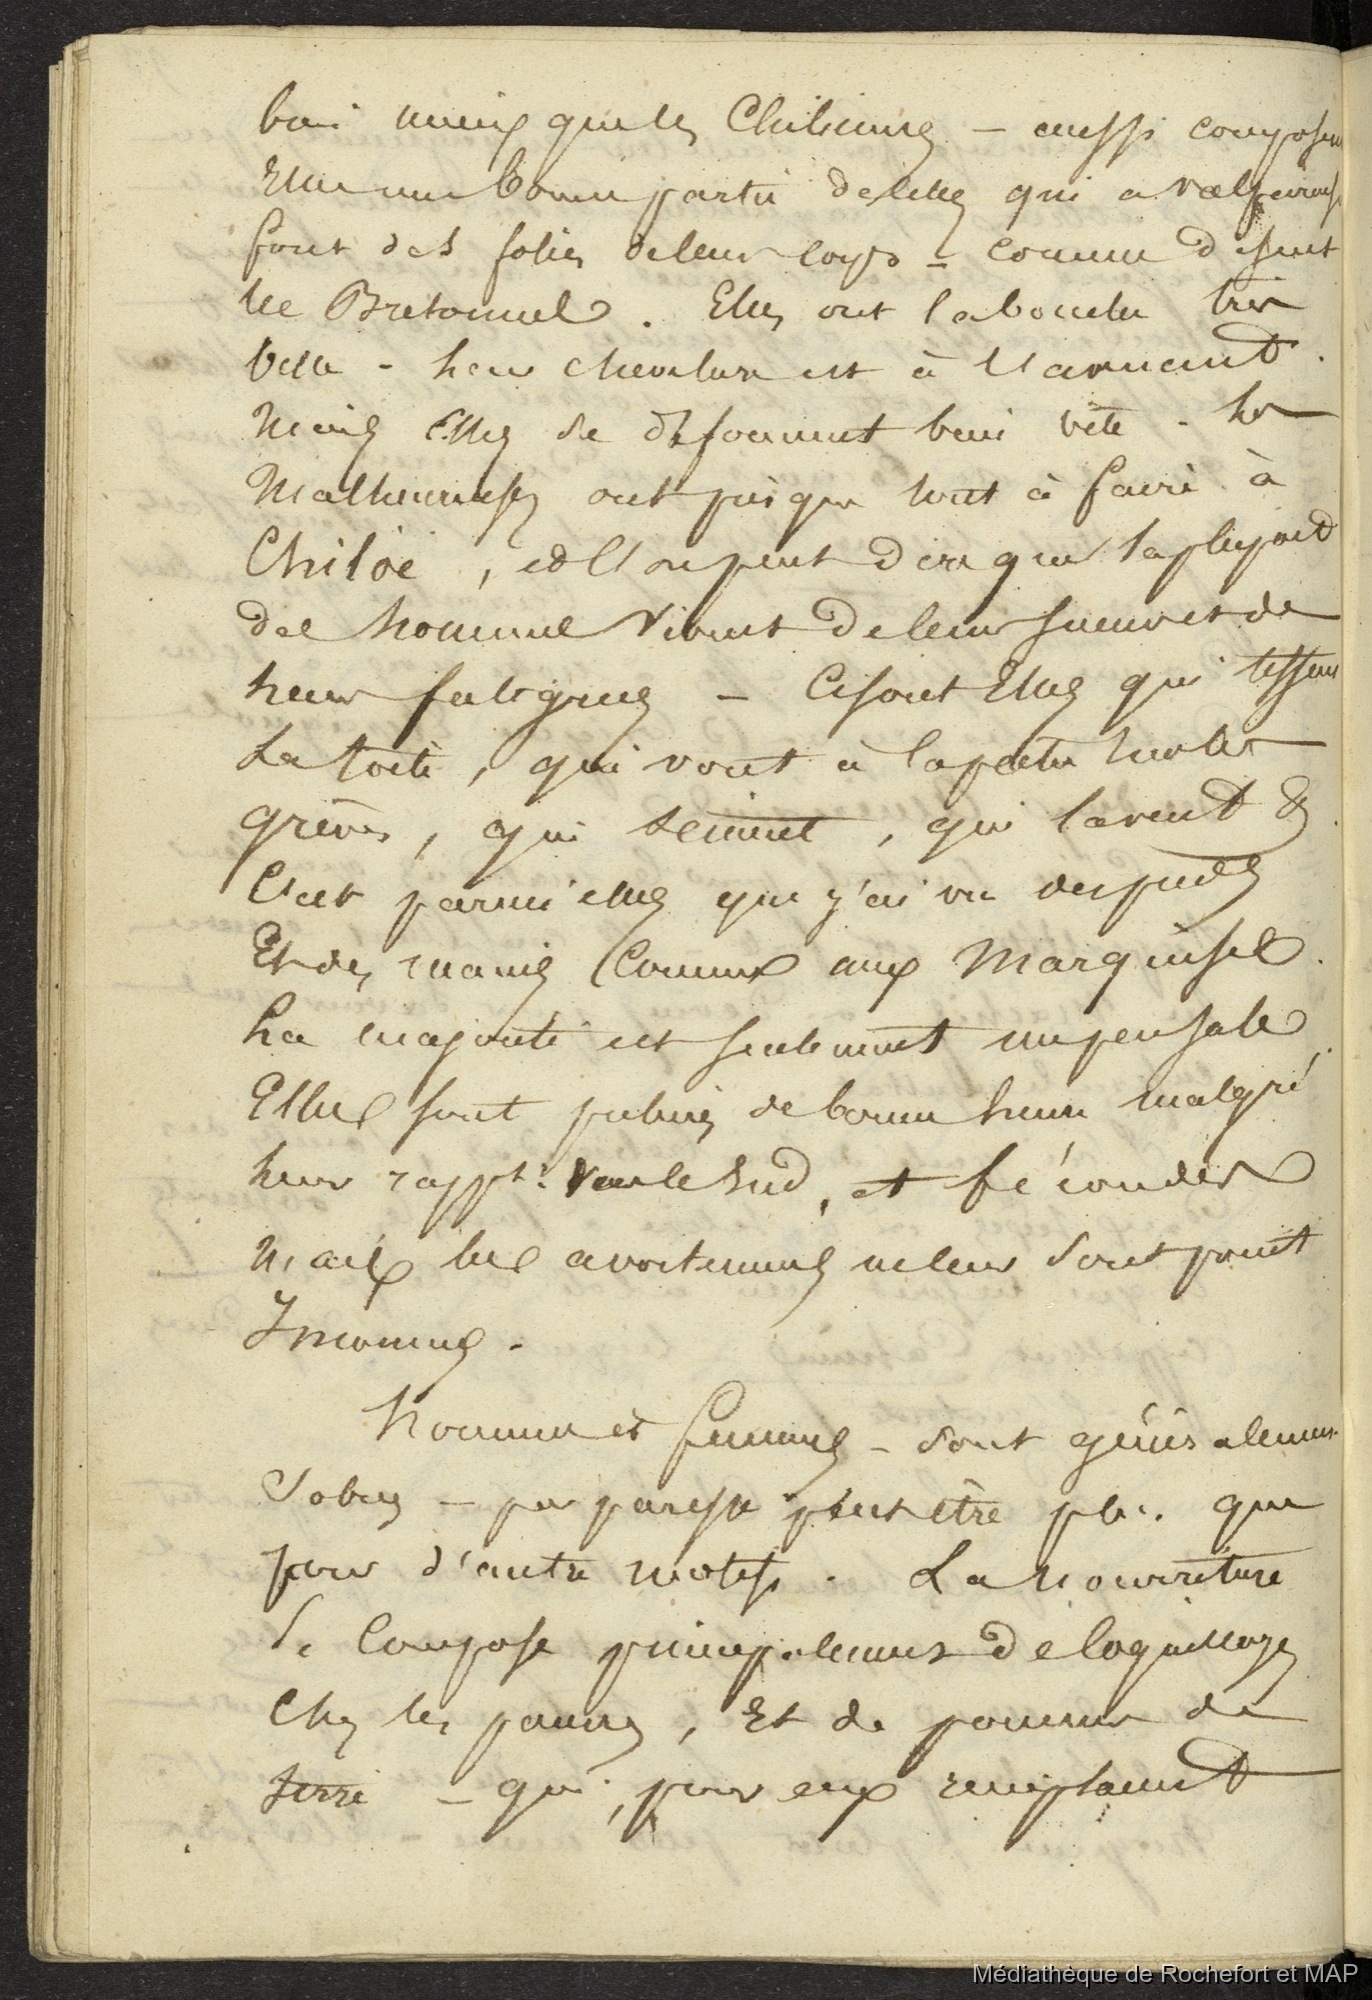 bien mieux que les Chiliennes – aussi composent
Elles une bonne partie de celles qui a valparaiso
font des folies de leur corps – comme disent
les Bretonnes. Elles ont la bouche très
belle – leur chevelure est à l'avenant.
Mais elles se déforment bien vite. les
Malheureuses ont presque tout à faire à
Chiloë, et l'on peut dire que la plupart
des hommes vivent de leur sueur et de
leurs fatigues – Ce sont Elles qui tissent
La toile, qui vont à la pêche sur les
grèves, qui sèment, qui lavent &
C'est parmi elles que j'ai vu des pieds
Et des mains Comme aux Marquises.
La majorité est seulement
Elles sont pubères de bonne heure malgré
leur rappt. vers le Sud, et fécondes
Mais les avortements ne leur sont point
Inconnus.
Hommes et femmes – sont généralement
Sobres – par paresse peut être plus que
pour d'autre motifs. La nourriture
Se Compose principalement De coquillages
Chez les pauvres, Et de pommes de
terre – qui, pour eux remplacent
Médiathèque de Rochefort et MAP